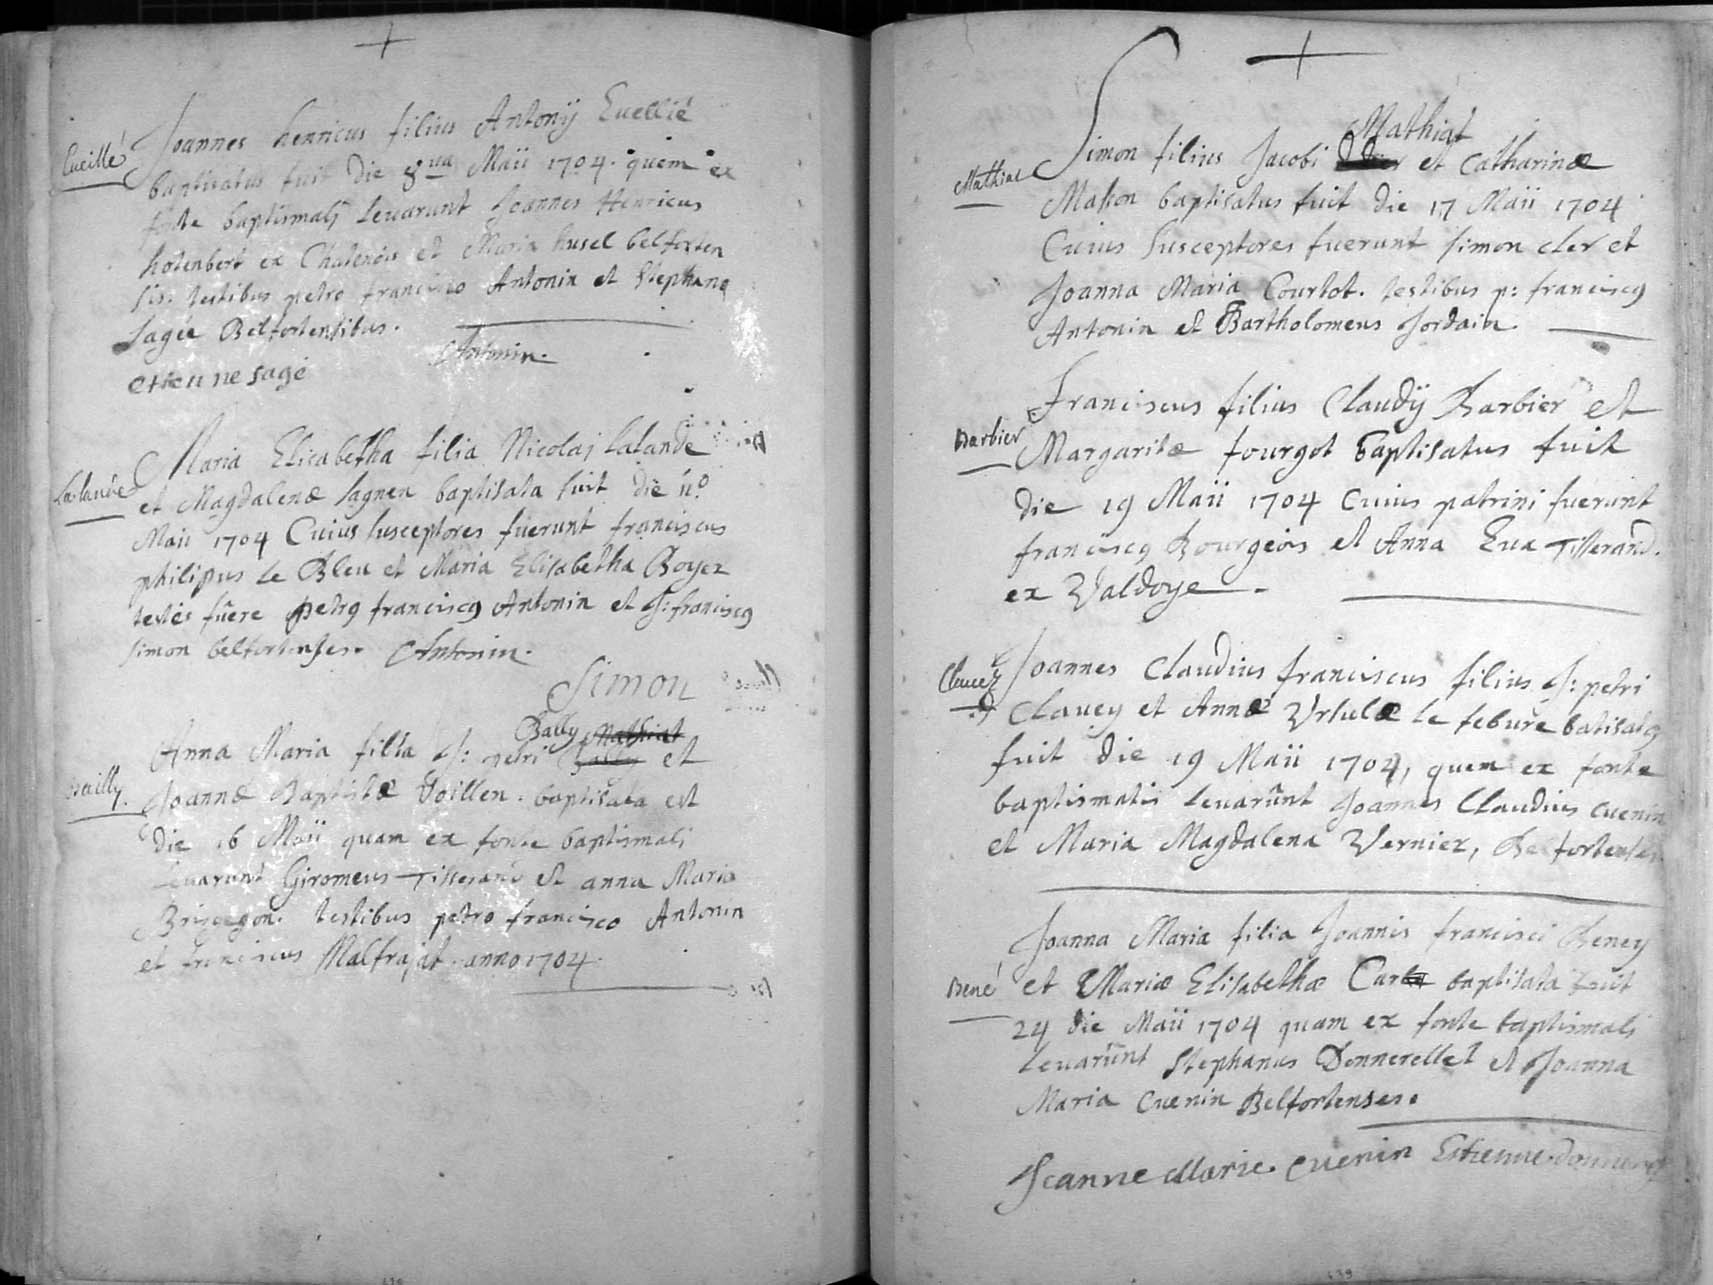 Cueillé
Joannes henricus filius Antonÿ Euellié
baptisatus fuit die 8va Maii 1704. quem ex
fonte baptismali levarunt Joannes Henricus
hotenbert ex Chatenois et Maria husel belforten
sis. testibus petro francisco Antonin et Stephano
Sagée Belfortensibus.
Antonin.
etieune sagé
Lalande
Maria Elisabetha filia Nicolaj lalande
et Magdalenæ lagnen baptisata fuit die 11º
Maii 1704 Cuius susceptores fuerunt franciscus
philipus Le Bleu et Maria Elisabetha Boyer
testes fuere petrq franciscq Antonin et J: franciscq
simon belfortenses. Antonin.
Simon
Bailly
Bally Mathiat
Anna Maria filia J: petri Bally et
Joannæ Baptistæ Voillen. baptisata est
die 16 Maii quam ex fonte baptismali
Levarunt Giromeus Tisserand et anna Maria
testibus petro francisco Antonin
et franciscus Malfrajat. anno 1704.
Mathiat
Mathiat
Simon filius Jacobi et Catharinæ
Masson baptisatus fuit die 17 Maii 1704
Cuius Susceptores fuerunt simon cler et
Joanna Maria Courtot. testibus p: franciscq
Antonin et Bartholomeus Jordain.
Barbier
Franciscus filius Claudÿ Barbier et
Margaritæ fourgot baptisatus fuit
die 19 Maii 1704 cuius patrini fuerunt
franciscq Bourgeois et Anna Eva Tisserand.
ex Valdoye.
Clauey
Joannes Claudius franciscus filius J: petri
Clauey et Annæ Ursulæ le febure batisatq
fuit die 19 Maii 1704, quem ex fonte
baptismatis levarunt Joannes Claudius cuenin
et Maria Magdalena Vernier, Belfortenses
Bené
Joanna Maria filia Joannis francisci Beney
et Mariæ Elisabethæ baptisata fuit
24 die Maii 1704 quam ex fonte baptismali
Levarunt Stephanus Donnerellet et Joanna
Maria Cuenin Belfortenses.
Jeanne Marie. cuenin Estienne